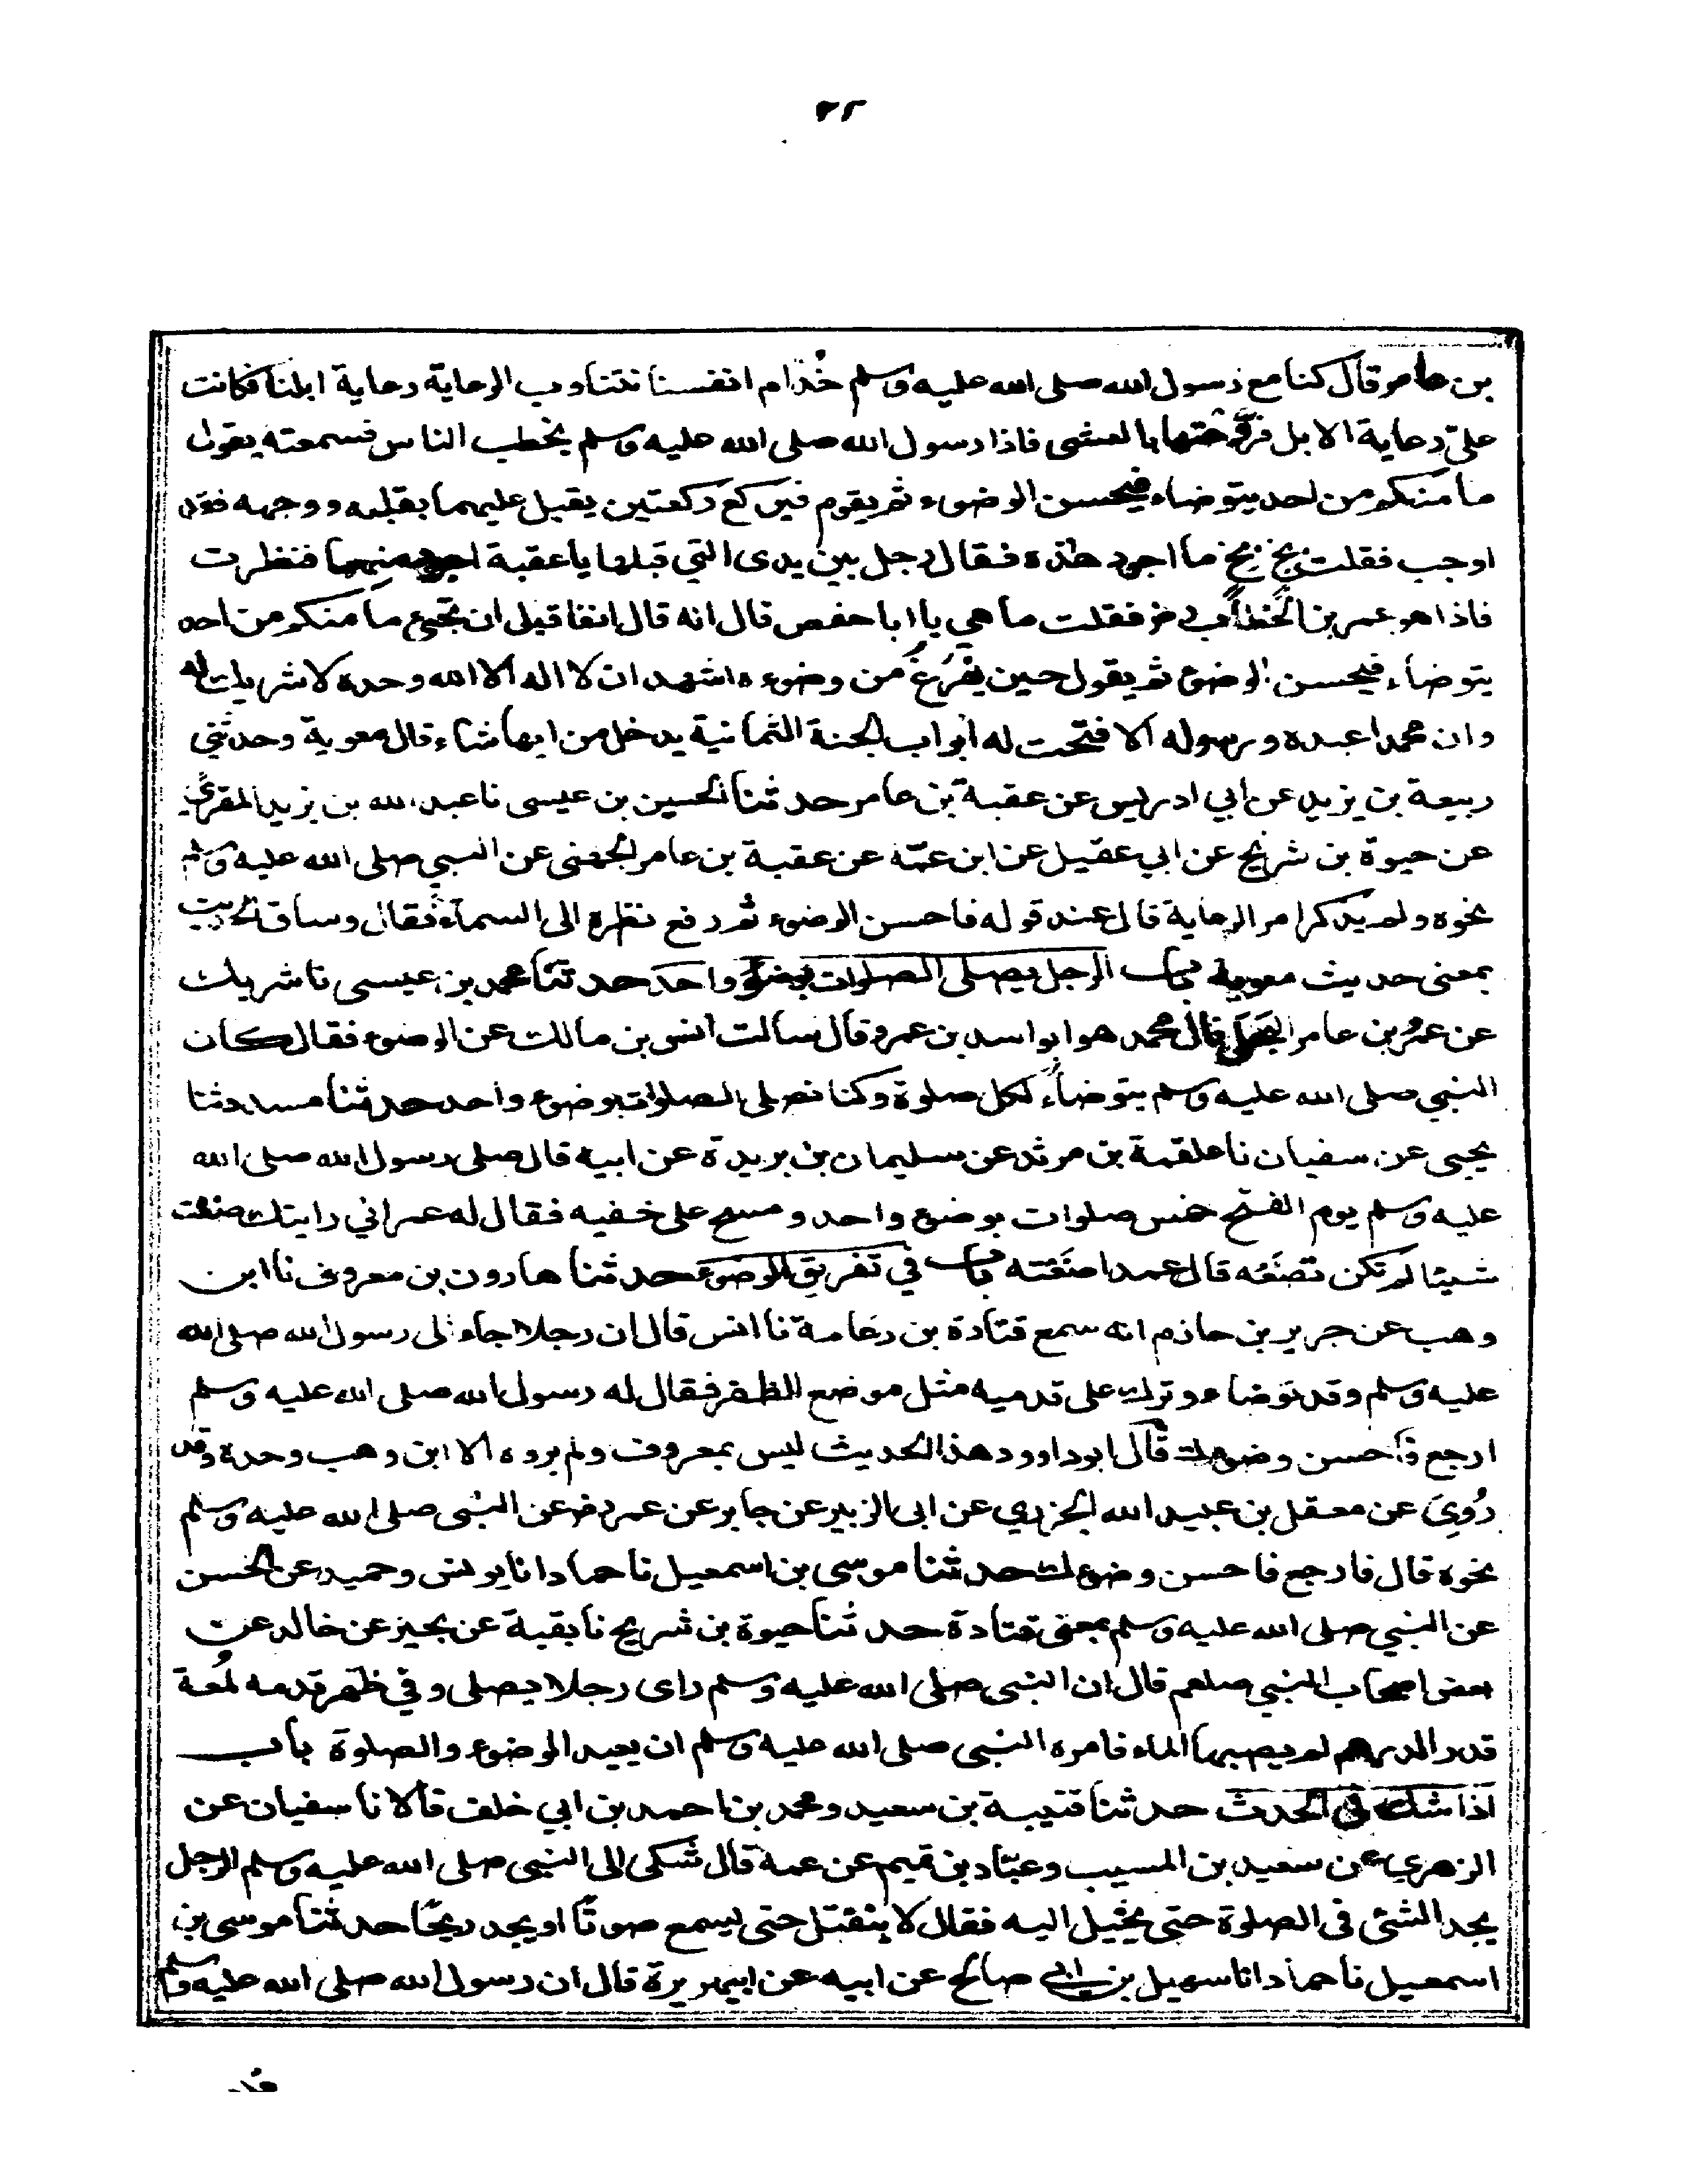 ٣٢
بن عامر قال كنا مع رسول الله صلى الله عليه وسلم خُدّام انفسنا نتناوب الرعاية رعاية ابلنا فكانت
عليّ رعاية الابل فروّحتها بالعشى فاذا رسول الله صلى الله عليه وسلم يخطب الناس فسمعته يقول
ما منكم من احد يتوضاء فيحسن الوضوء ثم يقوم فيركع ركعتين يقبل عليهما بقلبه ووجهه فقد
اوجب فقلت بخ بخ ما اجود هذه فقال رجل بين يدى التي قبلها يا عقبة اجود منها فنظرت
فاذا هو عمر بن الخطاب رض فقلت ما هي يا ابا حفص قال انه قال انفا قبل ان تجيء ما منكم من احد
يتوضاء فيحسن الوضوء ثم يقول حين يفرُغُ من وضوءه اشهد ان لا اله الا الله وحده لا شريك له
وان محمدا عبده ورسوله الا فتحت له ابواب الجنة الثمانية يدخل من ايها شاء قال معوية وحدثني
ربيعة بن يزيد عن ابي ادريس عن عقبة بن عامر حدثنا الحسين بن عيسى نا عبد الله بن يزيد المقرئ
عن حيوة بن شريح عن ابي عقيل عن ابن عمّه عن عقبة بن عامر الجهنى عن النبي صلى الله عليه وسلم
نحوه ولم يذكر امر الرعاية قال عند قوله فاحسن الوضوء ثم رفع نظره الى السماء فقال وساق الحديث
بمعنى حديث معوية باب الرجل يصلى الصلوات بوضوء واحد حدثنا محمد بن عيسى نا شريك
عن عمرو بن عامر البجلى قال محمد هو ابو اسد بن عمرو قال سالت انس بن مالك عن الوضوء فقال كان
النبي صلى الله عليه وسلم يتوضاء لكل صلوة وكنا نصلى الصلوات بوضوء واحد حدثنا مسدد ثنا
يحيى عن سفيان نا علقمة بن مرثد عن سليمان بن بريدة عن ابيه قال صلى رسول الله صلى الله
عليه وسلم يوم الفتح خمس صلوات بوضوء واحد ومسح على خفيه فقال له عمر اني رايتك صنعت
شيئا لم تكن تصنَعُه قال عمدا صنَعته باب في تفريق الوضوء حدثنا هارون بن معروف نا ابن
وهب عن جرير بن حازم انه سمع قتادة بن دعامة نا انس قال ان رجلا جاء الى رسول الله صلى الله
عليه وسلم وقد توضاء وترك على قدميه مثل موضع الظفر فقال له رسول الله صلى الله عليه وسلم
ارجع فاحسن وضوءك قال ابو داوود هذا الحديث ليس بمعروف ولم يروه الا ابن وهب وحده وقد
رُوِيَ عن معقل بن عبيد الله الجزري عن ابى الزبير عن جابر عن عمر رض عن النبى صلى الله عليه وسلم
نحوه قال فارجع فاحسن وضوءك حدثنا موسى بن اسمعيل نا حماد انا يونس وحميد عن الحسن
عن النبي صلى الله عليه وسلم بمعنى قتادة حدثنا حيوة بن شريح نا بقية عن بحيز عن خالد عن
بعض اصحاب النبي صلعم قال ان النبى صلى الله عليه وسلم راى رجلا يصلى وفي ظهر قدمه لُمعة
قدر الدرهم لم يصبها الماء فامره النبى صلى الله عليه وسلم ان يعيد الوضوء والصلوة باب
اذا شك في الحدث حدثنا قتيبة بن سعيد ومحمد بن احمد بن ابي خلف قالا نا سفيان عن
الزهري عن سعيد بن المسيب وعبّاد بن تميم عن عمه قال شكى الى النبى صلى الله عليه وسلم الرجل
يجد الشئ فى الصلوة حتى يخيل اليه فقال لا ينفتل حتى يسمع صوتًا او يجد ريحًا حدثنا موسى بن
اسمعيل نا حماد انا سهيل بن ابي صالح عن ابيه عن ابيهريرة قال ان رسول الله صلى الله عليه وسلم